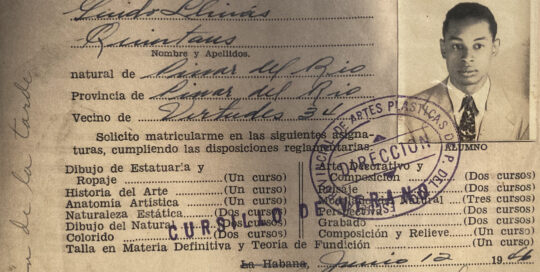 Guido Llinás
Quintans
Nombre y Apellidos.
natural de Pinar del Rio
Provincia de Pinar del Rio
Vecino de Virtudes 34
Solicito matricularme en las siguientes asigna-
turas, cumpliendo las disposiciones reglamentarias.
ALUMNO
DE ARTES PLASTICAS
DIRECCION
Dibujo de Estatuaria y
Ropaje (Un curso)
Historia del Arte (Un curso)
Anatomía Artística (Un curso)
Naturaleza Estática. (Dos cursos)
Dibujo del Natural (Dos cursos)
Colorido (Dos cursos)
Arte Decorativo y
Composición (Dos cursos)
Paisaje (Dos cursos)
Natural (Tres cursos)
(Un curso)
Grabado (Dos cursos)
Composición y Relieve (Un curso)
Talla en Materia Definitiva y Teoría de Fundición (Un curso)
CURSILLO DE VERANO
La Habana, Junio 12 1946
de la tarde